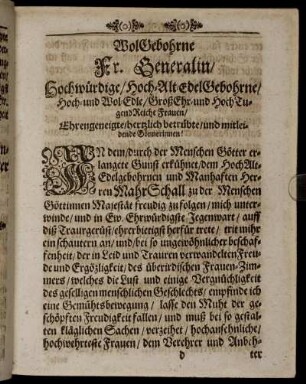 WolGebohrne
Fr. Generalin/
Hochwürdige/Hoch-Alt EdelGebohrne/
Hoch-und Wol Edle/GroßEhr-und Hoch Tu-
gendReiche Frauen/
Ehrengeneigte/hertzlich betrübte/und mitlei-
dende Gönnerinnen!
dem/durch der Menschen Götter er-
langete Gunst erkühnet/dem Hoch-Alt-
Edelgebohrnen und Manhaften Her-
ren MahrSchall zu der Menschen
Göttinnen Majestät freudig zu folgen/mich unter-
winde/und in Ew. Ehrwürdigste Jegenwart/auff
diß Traurgerüst/ehrerbietigst herfür trete/ trit mihr
ein schautern an/und/bei so ungewöhnlicher beschaf-
fenheit/der in Leid und Trauren verwandelten Freu-
de und Ergözligkeit/des überirdischen Frauen-Zim-
mers/welches die Lust und einige Vergnüglichkeit
des geselligen menschlichen Geschlechtes/empfinde ich
eine Gemühtsbewegung/ lasse den Muht der ge-
schöpften Freudigkeit fallen/und muß bei so gestal-
ten kläglichen Sachen/verzeihet/hochansehnliche/
hochwehrteste Frauen/dem Verehrer und Anbeh-
D ter